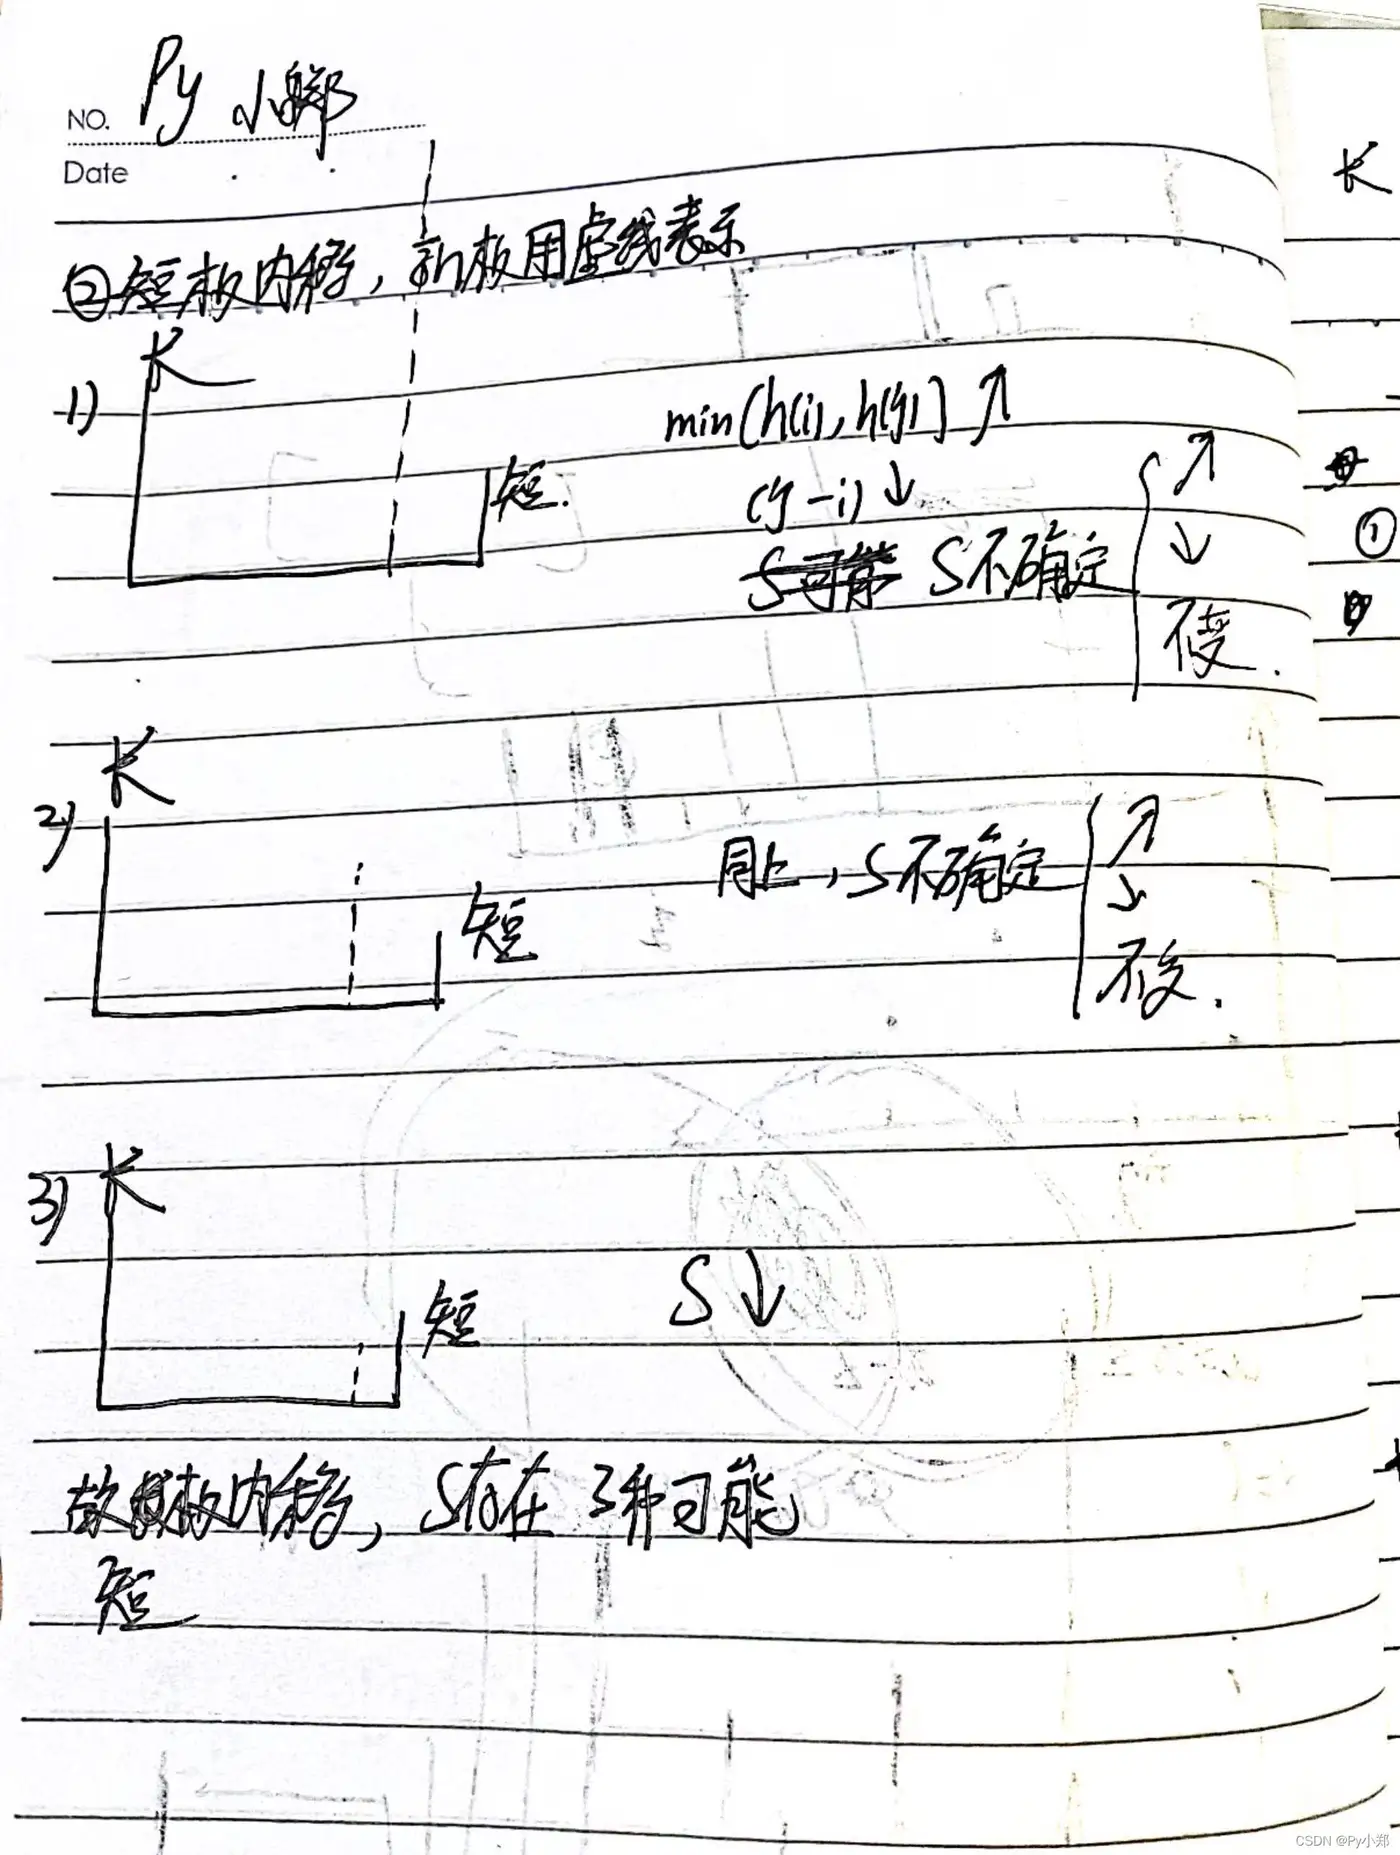 NO. Py 小郑
Date
②短板内移，新板用虚线表示
1) 长
短.
min(h(i), h(j)] ↑
(j-i)↓
S可能 S不确定 { ↑
↓
不变.
2) 长
短
同上，S不确定 { ↑
↓
不变.
3) 长
短
S↓
故板内移，S存在3种可能
短
长
①
CSDN @Py小郑